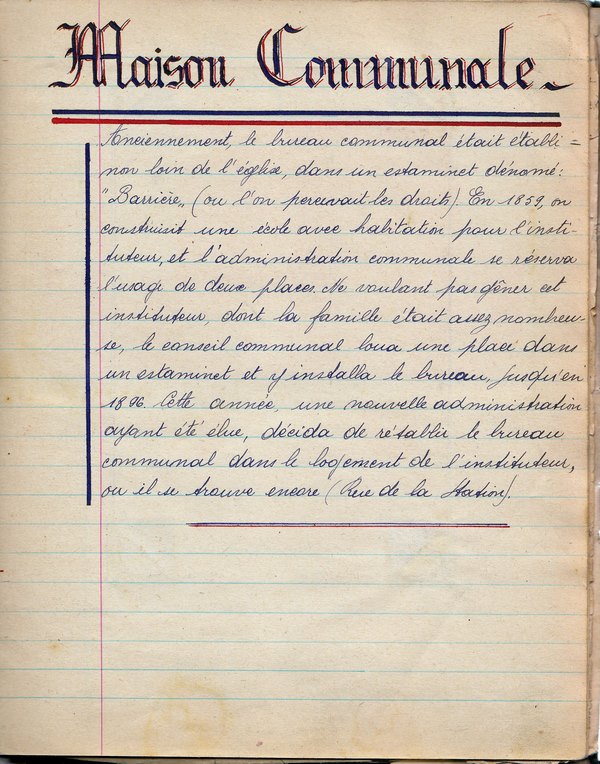 Maison Communale
Anciennement, le bureau communal était établi =
non loin de l'église, dans un estaminet dénomé:
"Barrière„ (ou l'on percevait les droits). En 1859, on
construisit une école avec habitation pour l'insti-
tuteur, et l'administration communale se réserva
l'usage de deux places. Ne voulant pas gêner cet
instituteur, dont la famille était assez nombreu-
se, le conseil communal loua une place dans
un estaminet et y installa le bureau, jusqu'en
1896. Cette année, une nouvelle administration
ayant été élue, décida de rétablir le bureau
communal dans le logement de l'instituteur,
ou il se trouve encore (Rue de la Station).